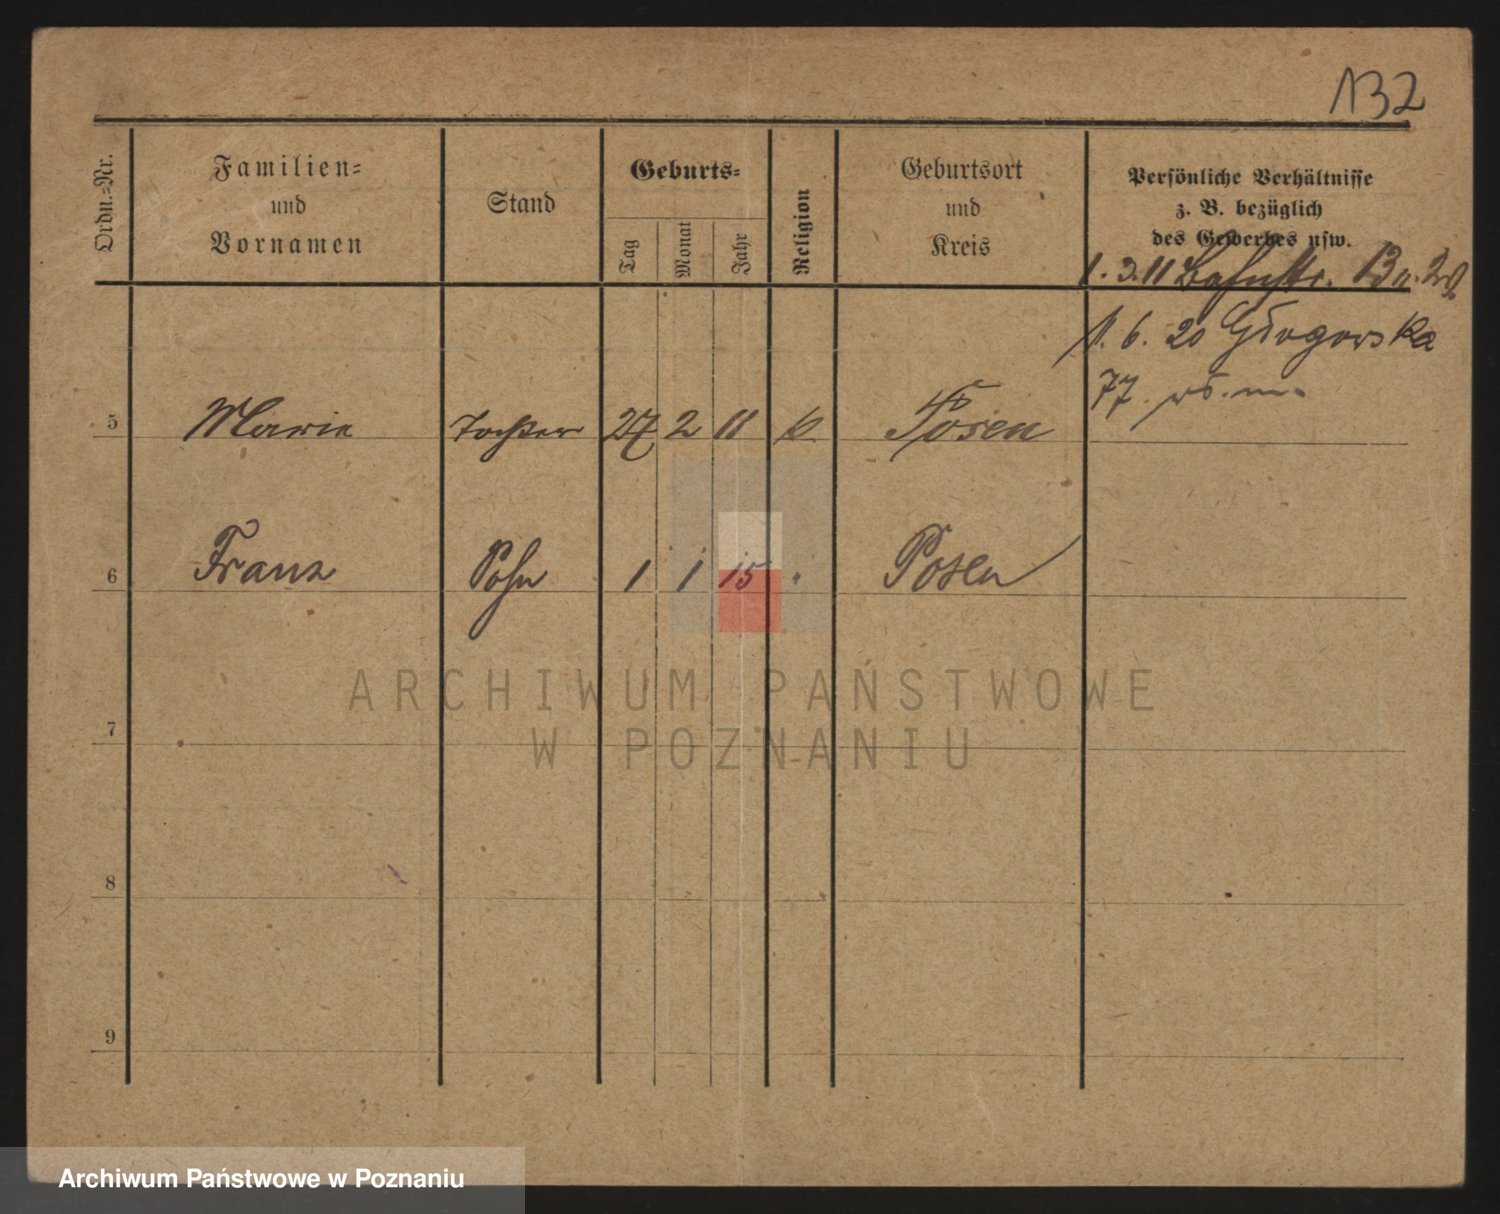 132
Ordn.-Nr.
Familien-
und
Vornamen
Stand
Geburts-
Tag
Monat
Jahr
Religion
Geburtsort
und
Kreis
Persönliche Verhältnisse
z. B. bezüglich
des Gewerbes usw.
1. 3. 11 13 n.
1. 6. 20 Głogowska
77
5 Marie Tochter 27 2 11 k. Posen
6 Franz Sohn 1 1 15 Posen
7
8
9
ARCHIWUM PAŃSTWOWE
W POZNANIU
Archiwum Państwowe w Poznaniu